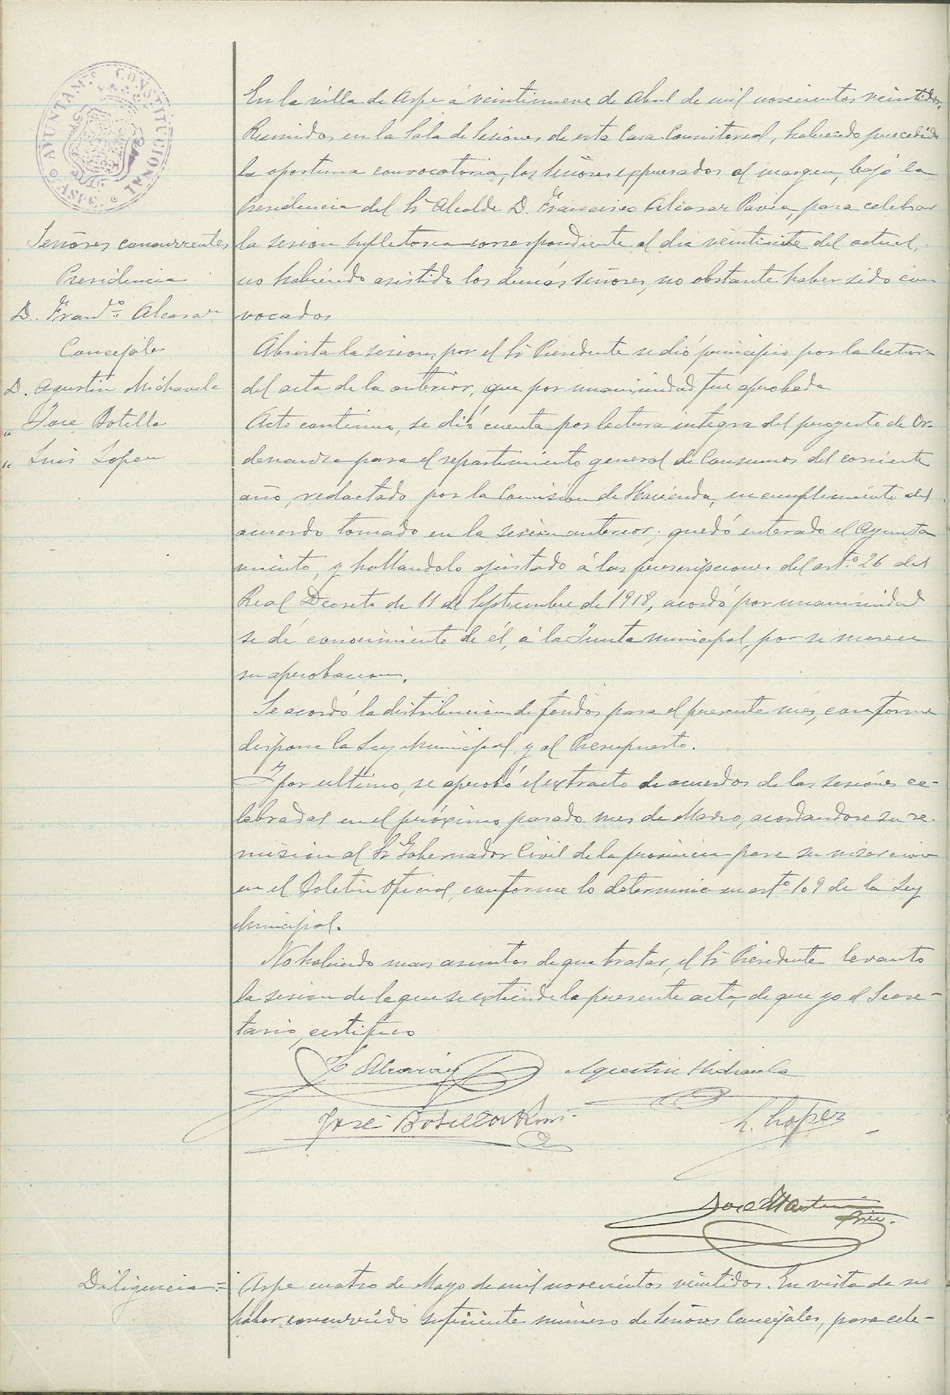 AYUNTAM.º CONSTITUCIONAL
ASPE
Señores concurrentes
Presidencia
D. Franc.º Alcaraz
Concejales
D. Agustin Michavila
" Jose Botella
" Luis Lopez
En la villa de Aspe á veintinueve de Abril de mil novecientos veintidos,
Reunidos en la Sala de Sesiones de esta Casa Consistorial, habiendo precedido
la oportuna convocatoria, los Señores expresados al margen, bajo la
Presidencia del Sr. Alcalde D. Francisco Pavia, para celebrar
la sesion supletoria correspondiente al dia del actual,
no habiendo asistido los demás señores, no obstante haber sido con-
vocados
Abierta la sesion, por el Sr. Presidente se dió principio por la lectura
del acta de la anterior, que por unanimidad fue aprobada
Acto continuo, se dió cuenta por lectura integra del proyecto de Or-
denanza para el repartimiento general de Consumos del corriente
año, redactado por la Comision de Hacienda, en cumplimiento del
acuerdo tomado en la sesion anterior; quedó enterado el Ayunta
miento, y hallandolo ajustado á las prescripciones del art.º 26 del
Real Decreto de 11 de Septiembre de 1918, acordó por unanimidad
se dé conocimiento de él, á la Junta municipal, por si merece
su aprobacion.
Se acordó la distribucion de fondos para el presente mes, conforme
dispone la Ley Municipal y al Presupuesto.
Y por ultimo, se aprobó el extracto de acuerdos de las sesiones ce-
lebradas en el próximo pasado mes de Marzo, acordandose su re-
mision al Sr. Gobernador Civil de la provincia para su insercion
en el Boletin Oficial, conforme lo determina el art.º 109 de la Ley
Municipal.
No habiendo mas asuntos de que tratar, el Sr. Presidente levanto
la sesion de la que se extiende la presente acta, de que yo el Secre-
tario, certifico
Agustin Michavila
José Botella
L. Lopez
José Martinez
Diligencia =
Aspe cuatro de Mayo de mil novecientos veintidos. En vista de no
haber concurrido suficiente número de Señores Concejales, para cele-